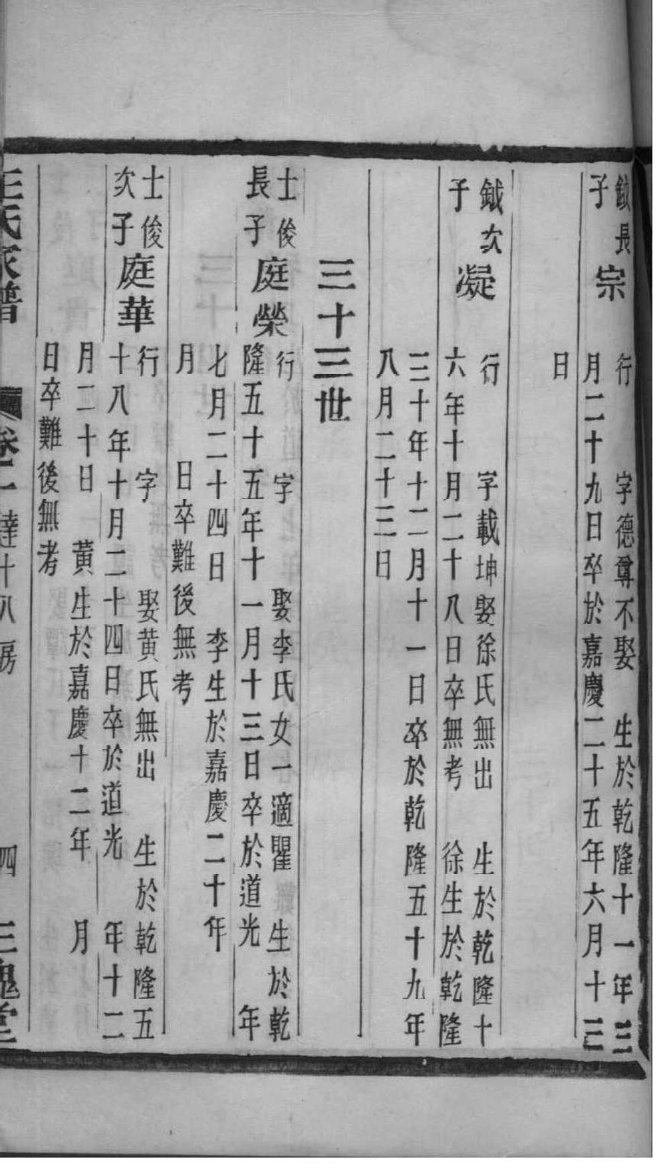 鉞長
子
宗
行　字德尊不娶　生於乾隆十一年三
月二十九日卒於嘉慶二十五年六月十三
日
鉞次
子
凝
行　字載坤娶徐氏無出　生於乾隆十
六年十月二十八日卒無考　徐生於乾隆
三十年十二月十一日卒於乾隆五十九年
八月二十三日
三十三世
士俊
長子
庭榮
行　字　娶李氏女一適瞿　生於乾
隆五十五年十一月十三日卒於道光　年
七月二十四日　李生於嘉慶二十年
月　日卒難後無考
士俊
次子
庭華
行　字　娶黄氏無出　生於乾隆五
十八年十月二十四日卒於道光　年十二
月二十日　黄生於嘉慶十二年　月
日卒難後無考
王氏家譜　卷二　達十八房　四　三槐堂